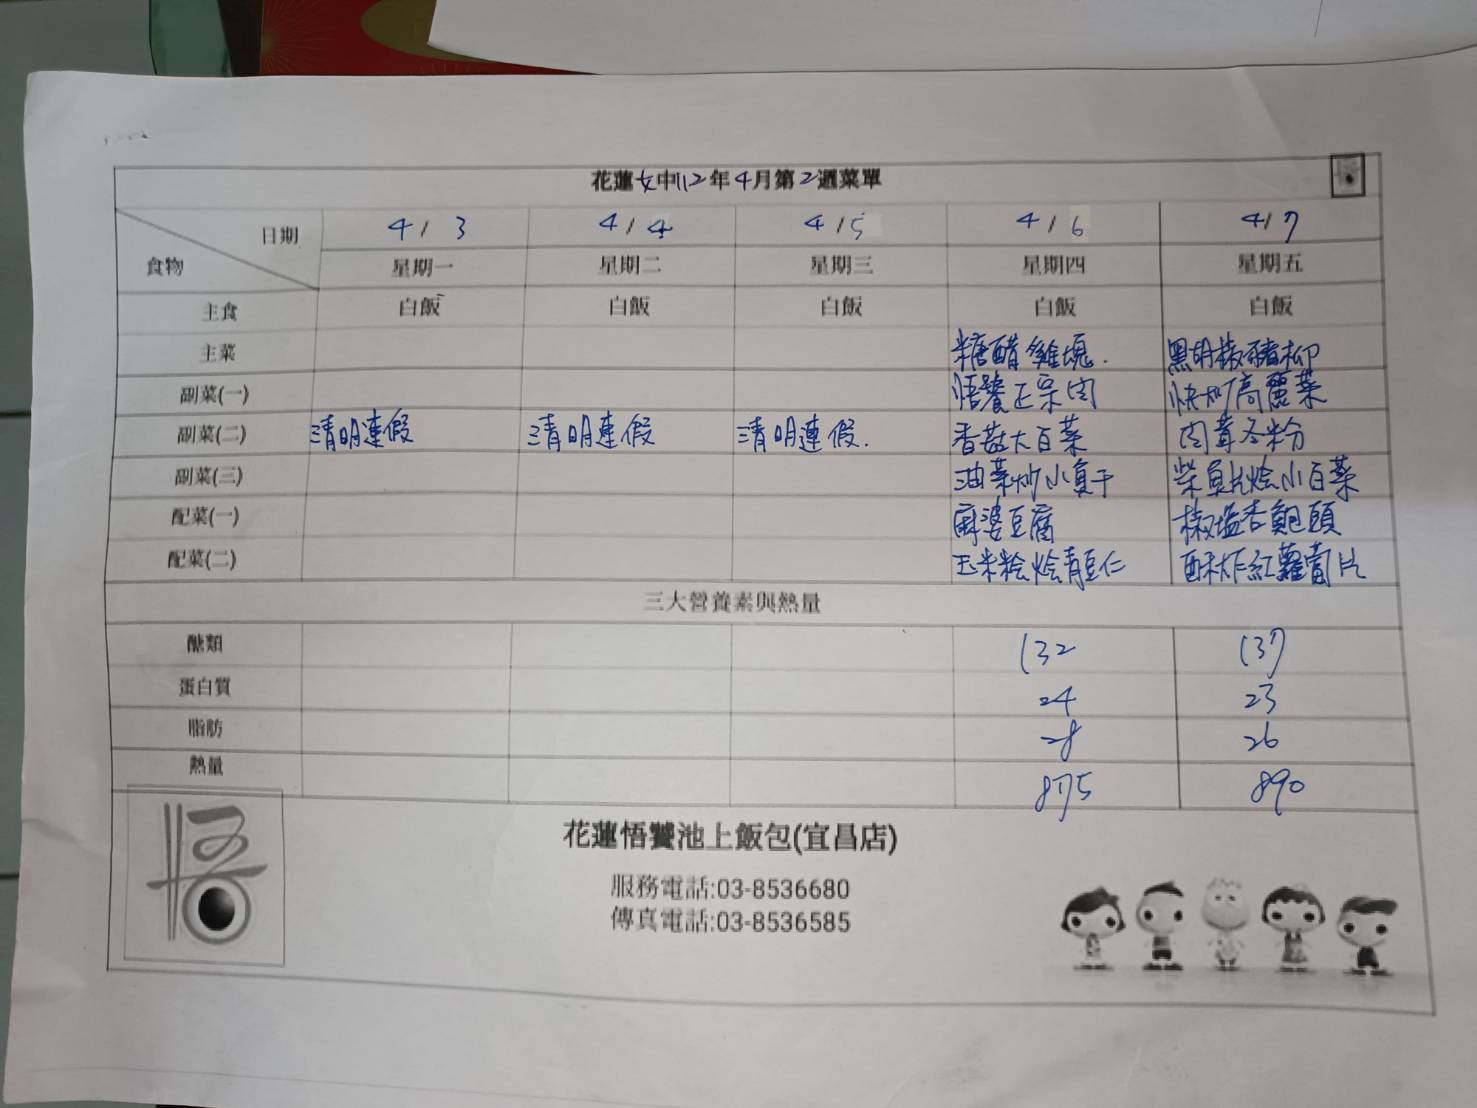 花蓮女中112年4月第2週菜單
日期 4/3 4/4 4/5 4/6 4/7
食物 星期一 星期二 星期三 星期四 星期五
主食 白飯 白飯 白飯 白飯 白飯
主菜 糖醋雞塊. 黑胡椒豬柳
副菜(一) 悟饕正宗肉 快炒高麗菜
副菜(二) 清明連假 清明連假 清明連假. 香菇大白菜 肉茸冬粉
副菜(三) 油菜炒小魚干 柴魚片燴小白菜
配菜(一) 麻婆豆腐 椒塩杏鮑頭
配菜(二) 玉米粒燴青豆仁 酥炸紅蘿蔔片
三大營養素與熱量
醣類 132 137
蛋白質 24 23
脂肪 28 26
熱量 875 890
悟
花蓮悟饕池上飯包(宜昌店)
服務電話:03-8536680
傳真電話:03-8536585